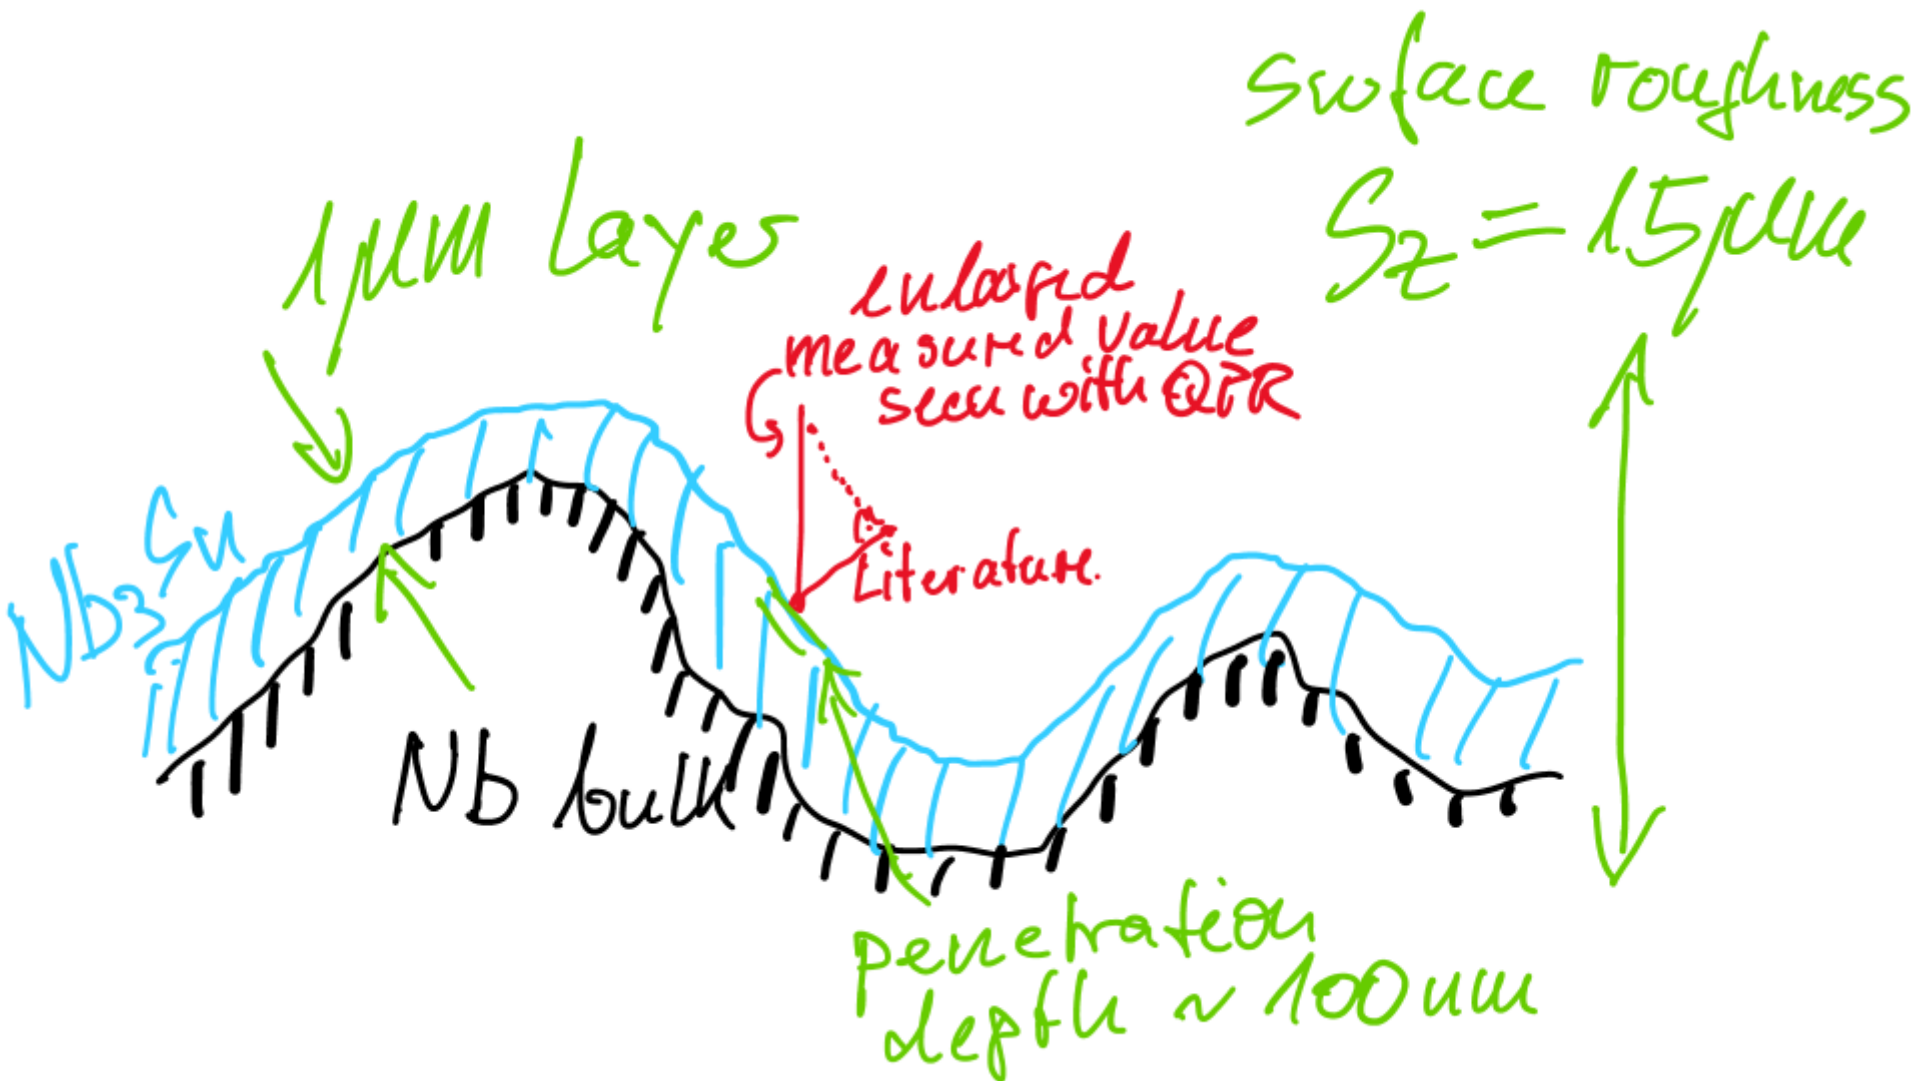 surface roughness
Sz = 15µm
1µm Layer
enlarged
measured value
seen with QPR
Literature.
Nb3Sn
Nb bulk
penetration
depth ~ 100nm